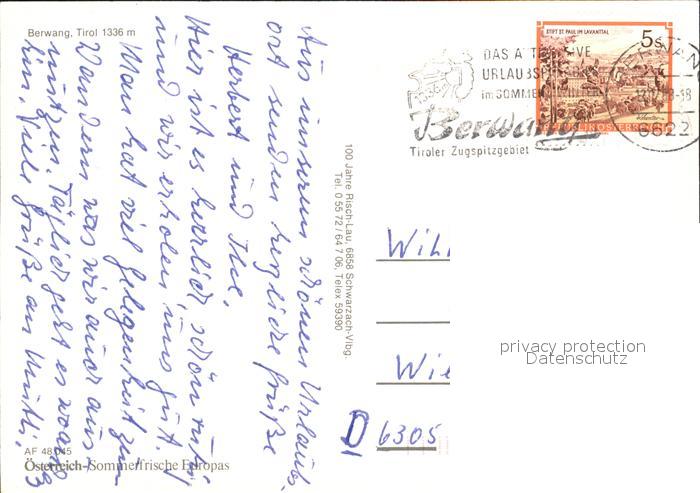 Berwang, Tirol 1336 m
STIFT ST. PAUL IM LAVANTTAL
5s
REPUBLIK ÖSTERREICH
DAS
URLAUBS
im SOMMER
Berwang
Tiroler Zugspitzgebiet
6622
Aus unserem schönen Urlaubs-
ort senden herzliche Grüße
Herbert und Ilse.
Hier ist es herrlich schön ruhig
und wir erholen uns gut.
Man hat viel Gelegenheit zum
Wandern was wir auch aus-
nützen. Täglich geht es
Viele Grüße an Mutti.
100 Jahre Risch-Lau, 6858 Schwarzach-Vlbg.
Tel. 0 55 72 / 64 7 06, Telex 59390
Wilh
Wie
D 6305
privacy protection
Datenschutz
AF 48045
Österreich-Sommerfrische Europas